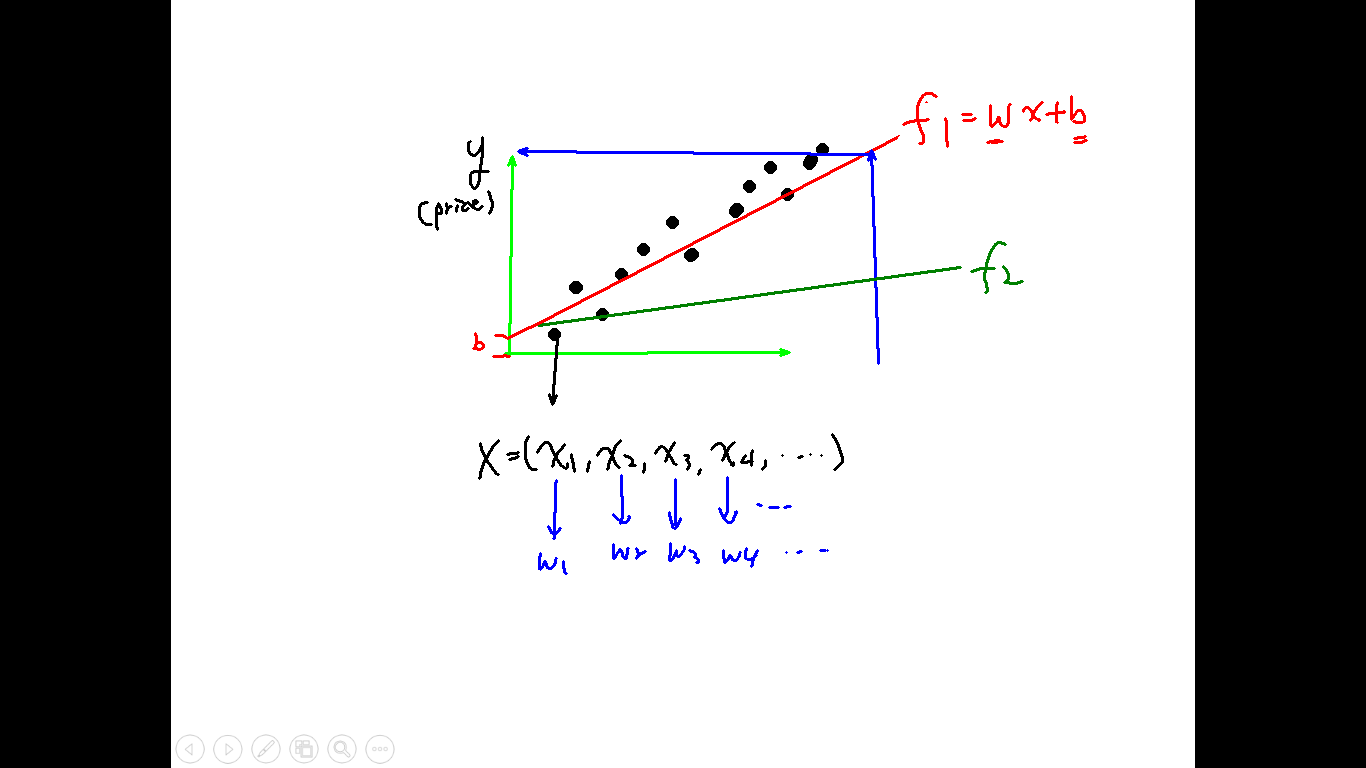 f1 = wx+b
y
(price)
f2
b
X=(x1, x2, x3, x4, .....)
...
w1 w2 w3 w4 ....